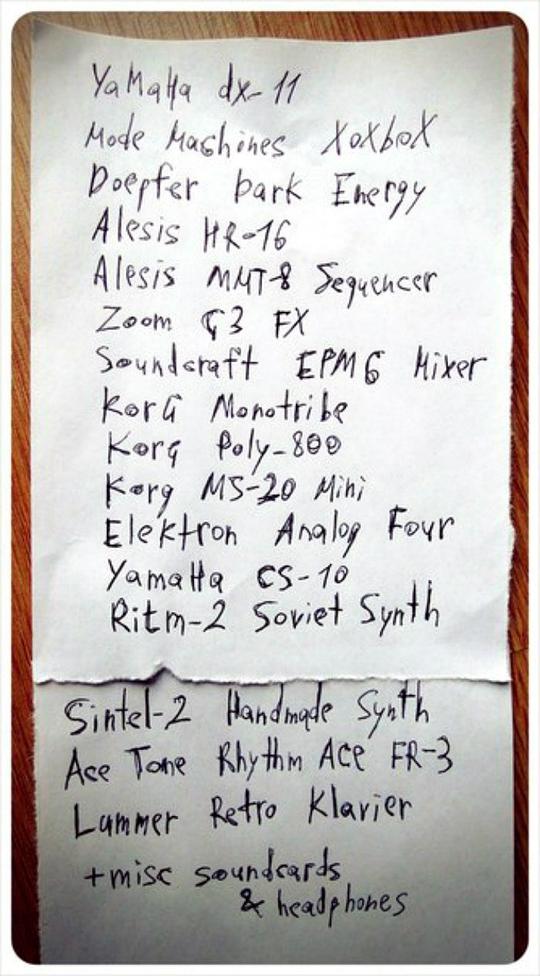 YaMaHa dx-11
Mode Machines XoXboX
Doepfer Dark Energy
Alesis HR-16
Alesis MMT-8 Sequencer
Zoom G3 FX
Soundcraft EPM6 Mixer
KorG Monotribe
Korg Poly-800
Korg MS-20 Mini
Elektron Analog Four
YamaHa CS-10
Ritm-2 Soviet Synth
Sintel-2 Handmade Synth
Ace Tone Rhythm Ace FR-3
Lummer Retro Klavier
+misc soundcards
& headphones